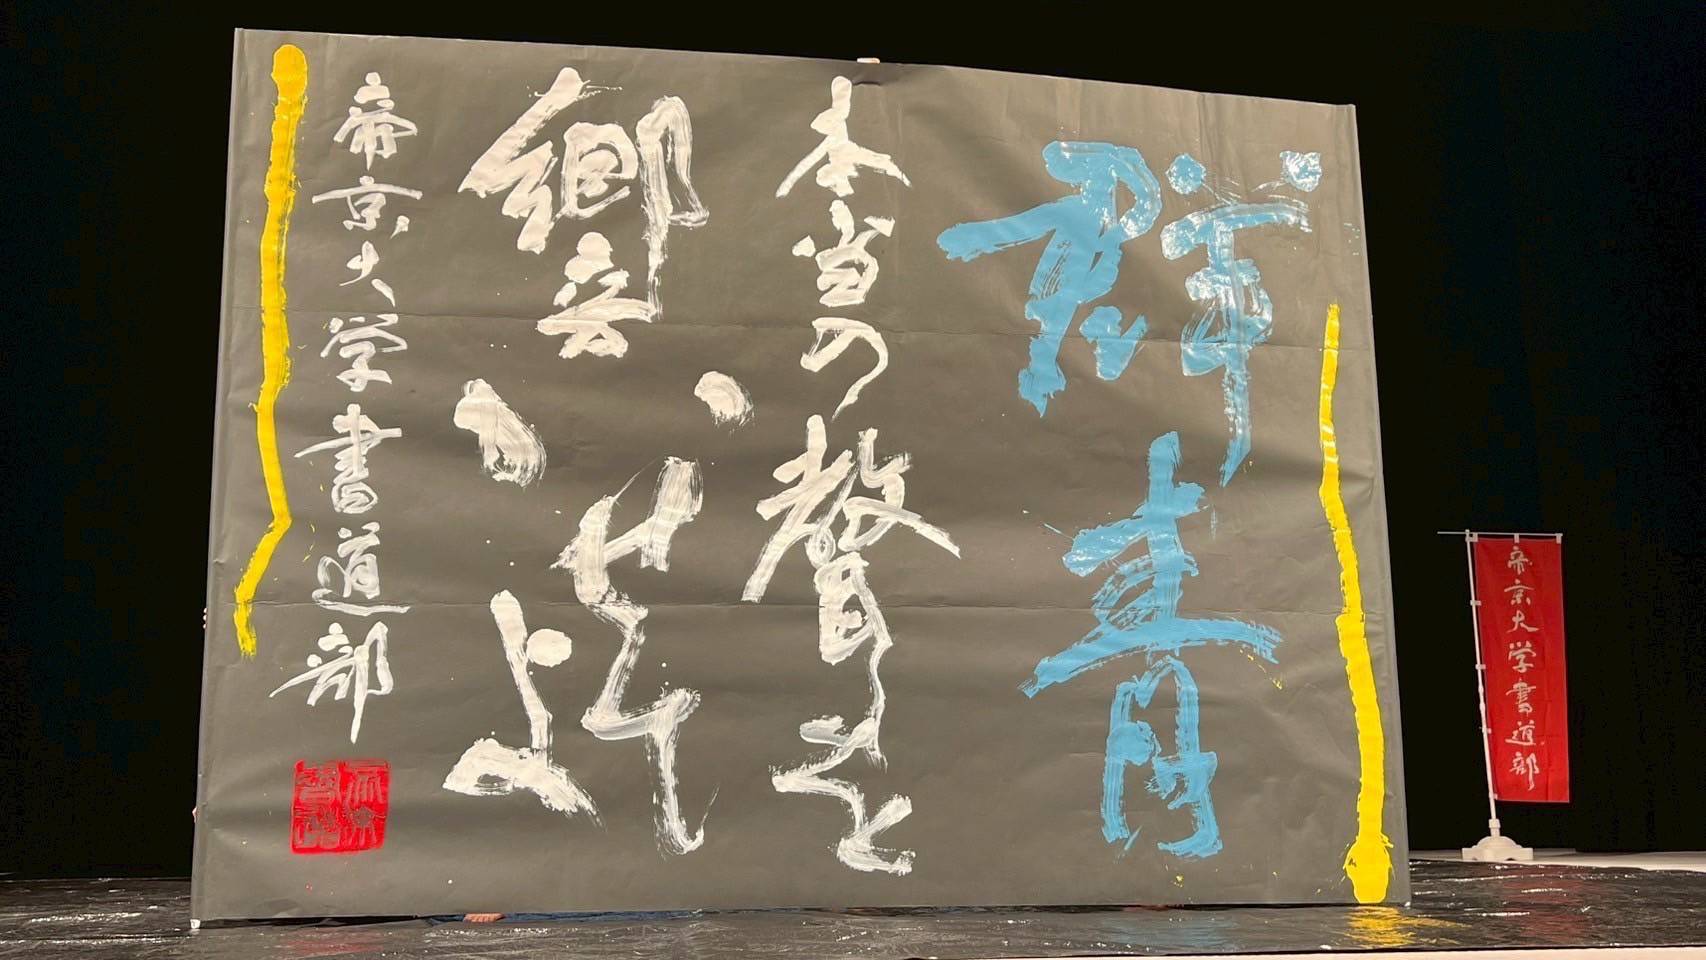 群青
本当の聲を
響かせてよ
帝京大学書道部
帝京大学書道部